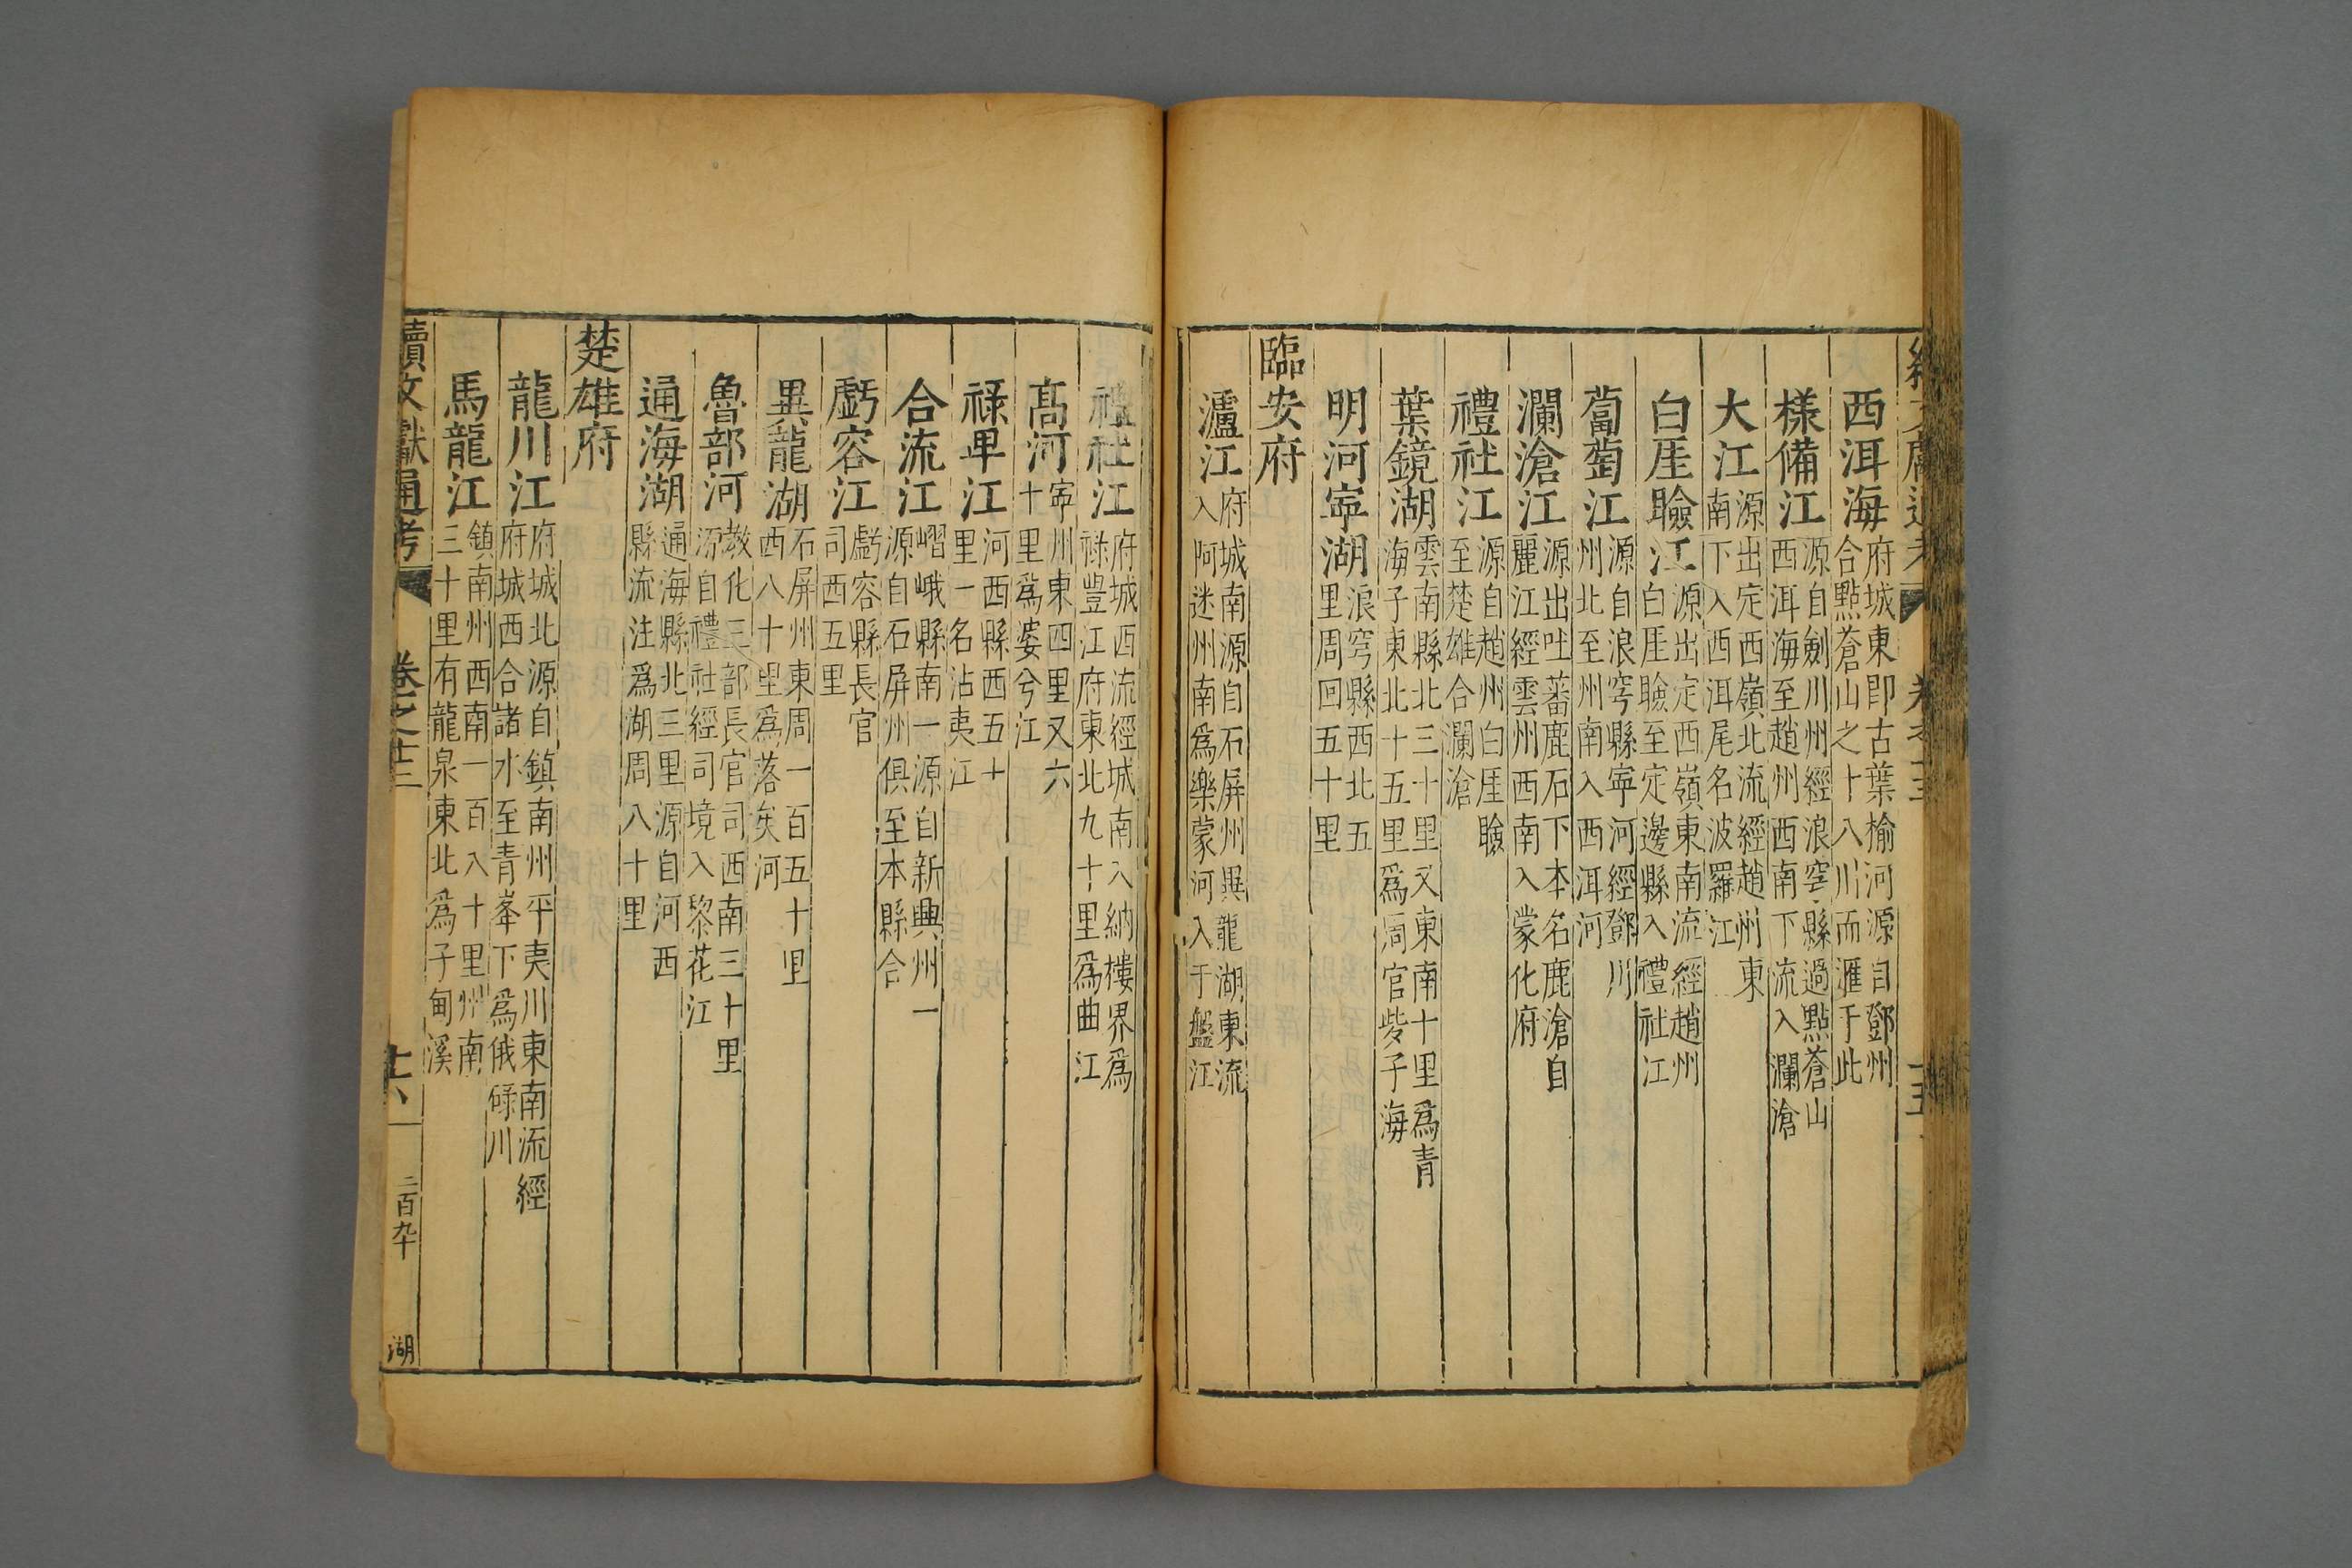 西洱海府城東即古葉榆河源自鄧州
合點蒼山之十八川而滙于此
樣備江源自劍川州經浪穹縣過點蒼山
西洱海至趙州西南下流入瀾滄
大江源出定西嶺北流經趙州東
南下入西洱尾名波羅江
白厓瞼江源出定西嶺東南流經趙州
白厓瞼至定邊縣入禮社江
蔔萄江源自浪穹縣寧河經鄧川
州北至州南入西洱河
瀾滄江源出吐蕃鹿石下本名鹿滄自
麗江經雲州西南入蒙化府
禮社江源自趙州白厓瞼
至楚雄合瀾滄
葉鏡湖雲南縣北三十里又東南十里爲青
海子東北十五里爲周官㱔子海
明河寧湖浪穹縣西北五
里周回五十里
臨安府
瀘江府城南源自石屏州異龍湖東流
入阿迷州南爲樂蒙河入于盤江
禮社江府城西流經城南入納樓界爲
祿豐江府東北九十里爲曲江
高河寧州東四里又六
十里爲婆兮江
祿卑江河西縣西五十
里一名沾夷江
合流江嶍峨縣南一源自新興州一
源自石屏州俱至本縣合
虧容江虧容縣長官
司西五里
異龍湖石屏州東周一百五十里
西八十里爲落矣河
魯部河教化三部長官司西南三十里
源自禮社經司境入黎花江
通海湖通海縣北三里源自河西
縣流注爲湖周八十里
楚雄府
龍川江府城北源自鎮南州平夷川東南流經
府城西合諸水至青峯下爲俄碌川
馬龍江鎮南州西南一百八十里州南
三十里有龍泉東北爲子甸溪
續文獻通考 卷之 二百 湖